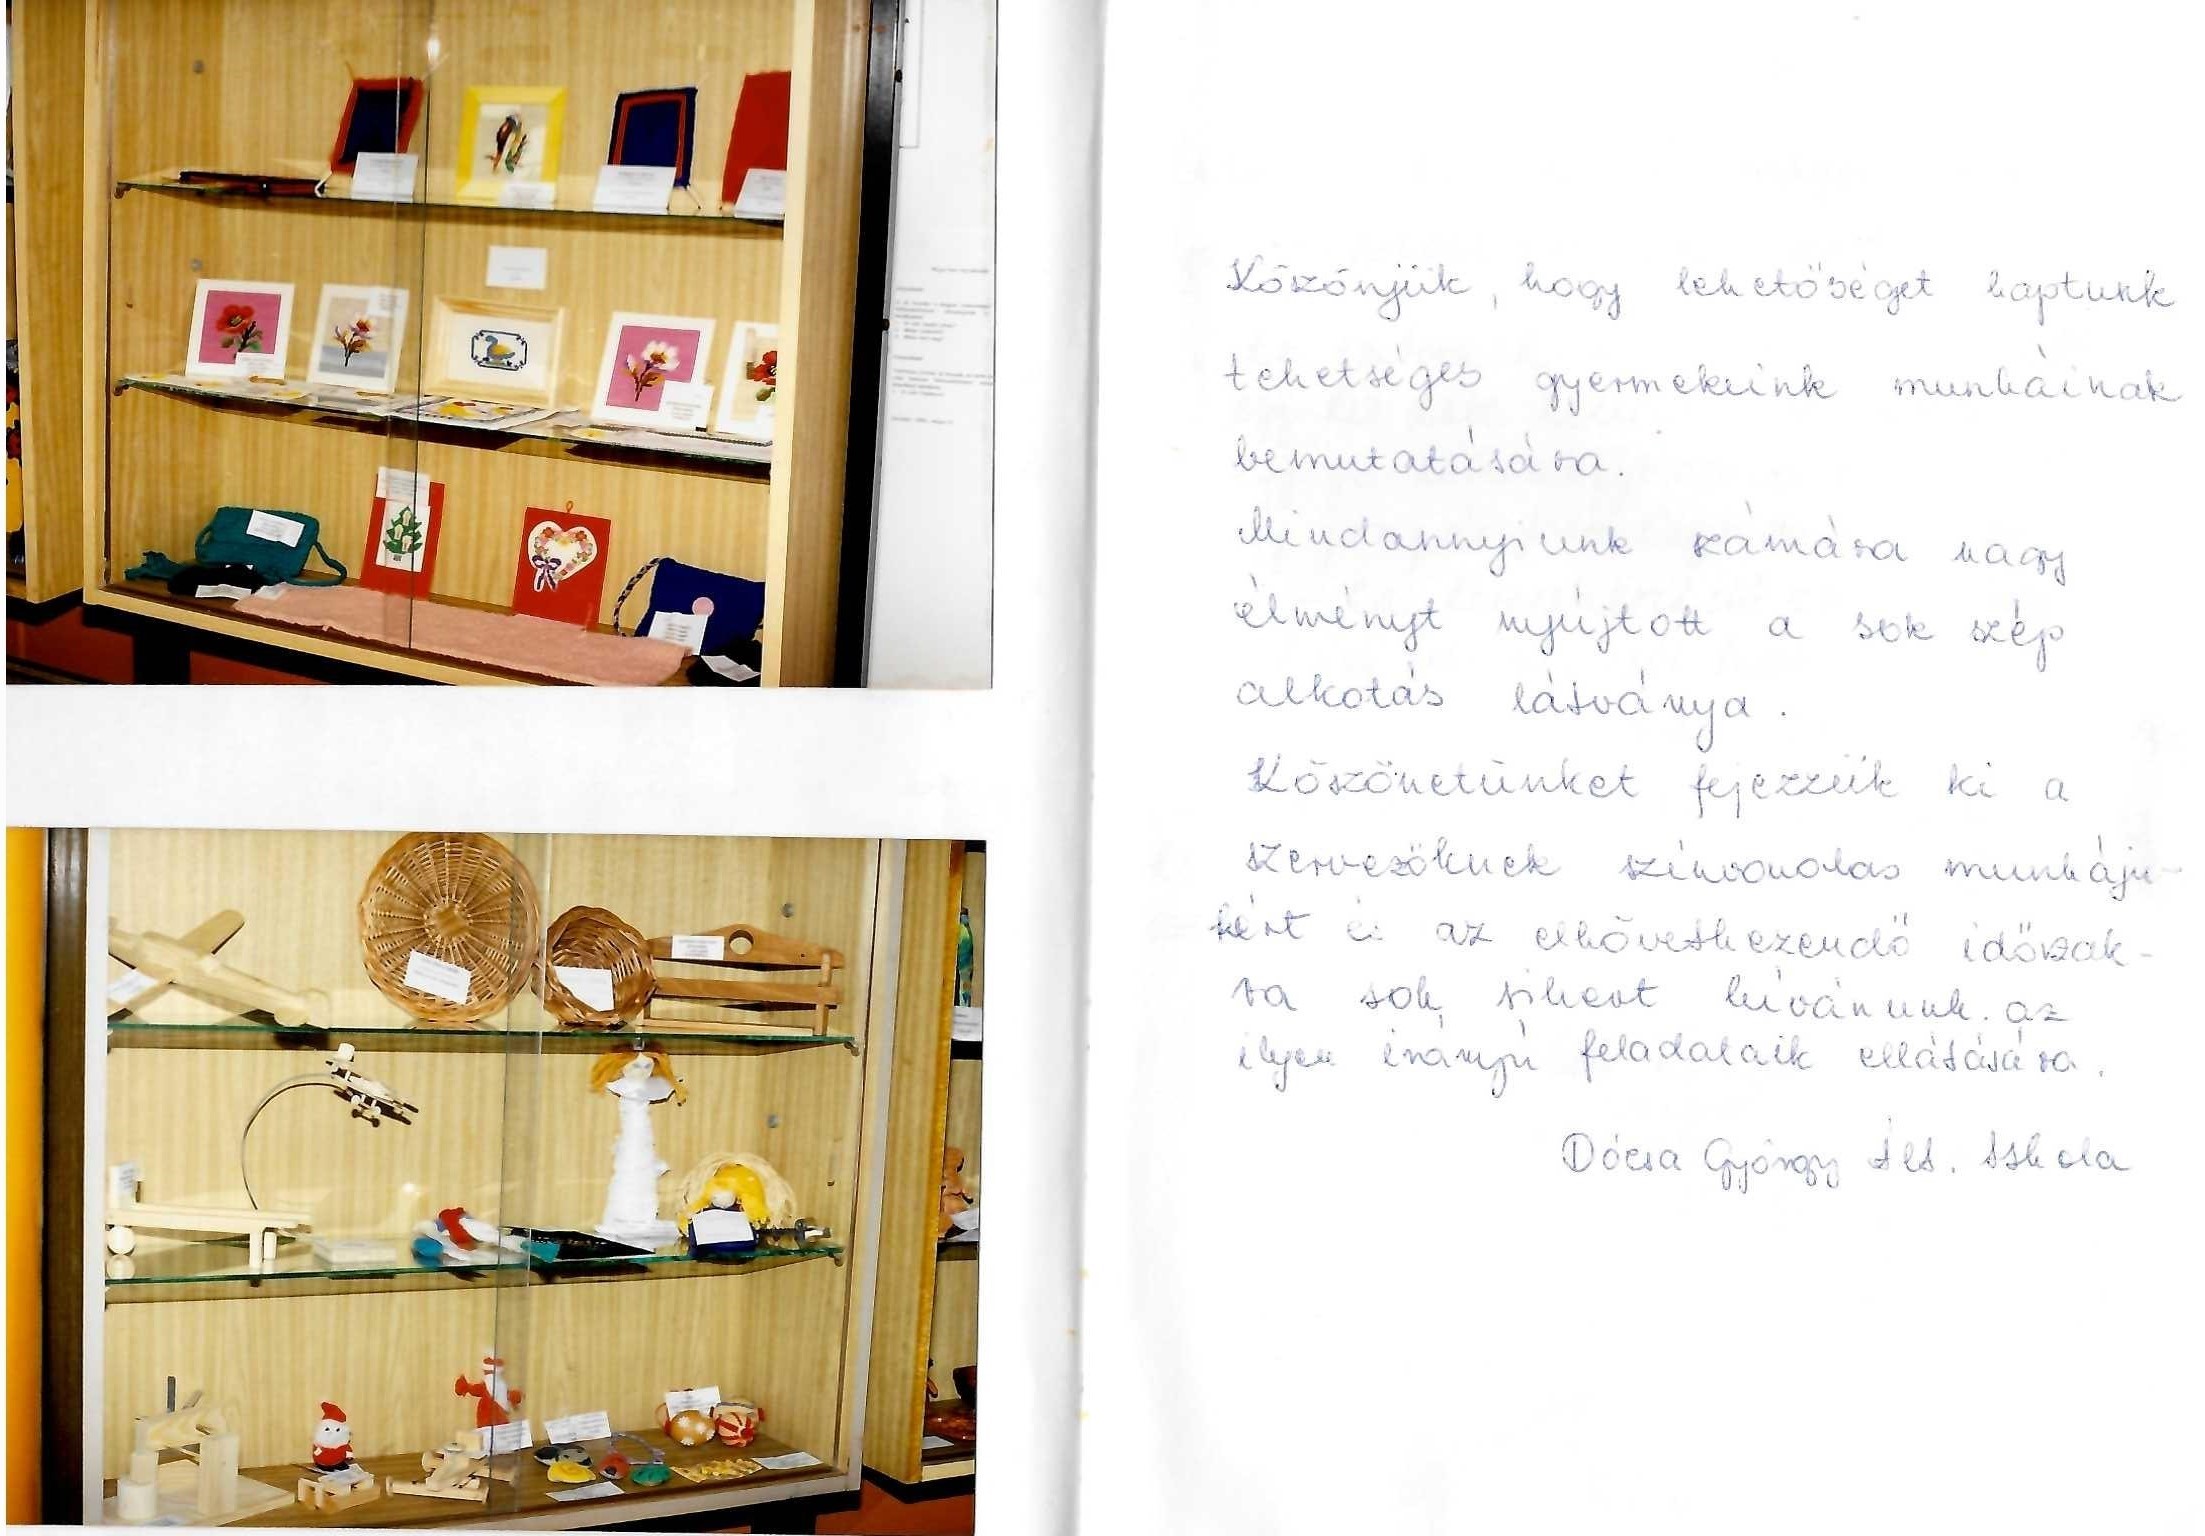 Köszönjük, hogy lehetőséget kaptunk
tehetséges gyermekeink munkáinak
bemutatására.
Mindannyiunk számára nagy
élményt nyújtott a sok szép
alkotás látványa.
Köszönetünket fejezzük ki a
szervezőknek színvonalas munkáju-
kért és az elkövetkezendő időszak-
ra sok sikert kívánunk az
ilyen irányú feladataik ellátására.
Dócsa György Ált. Iskola